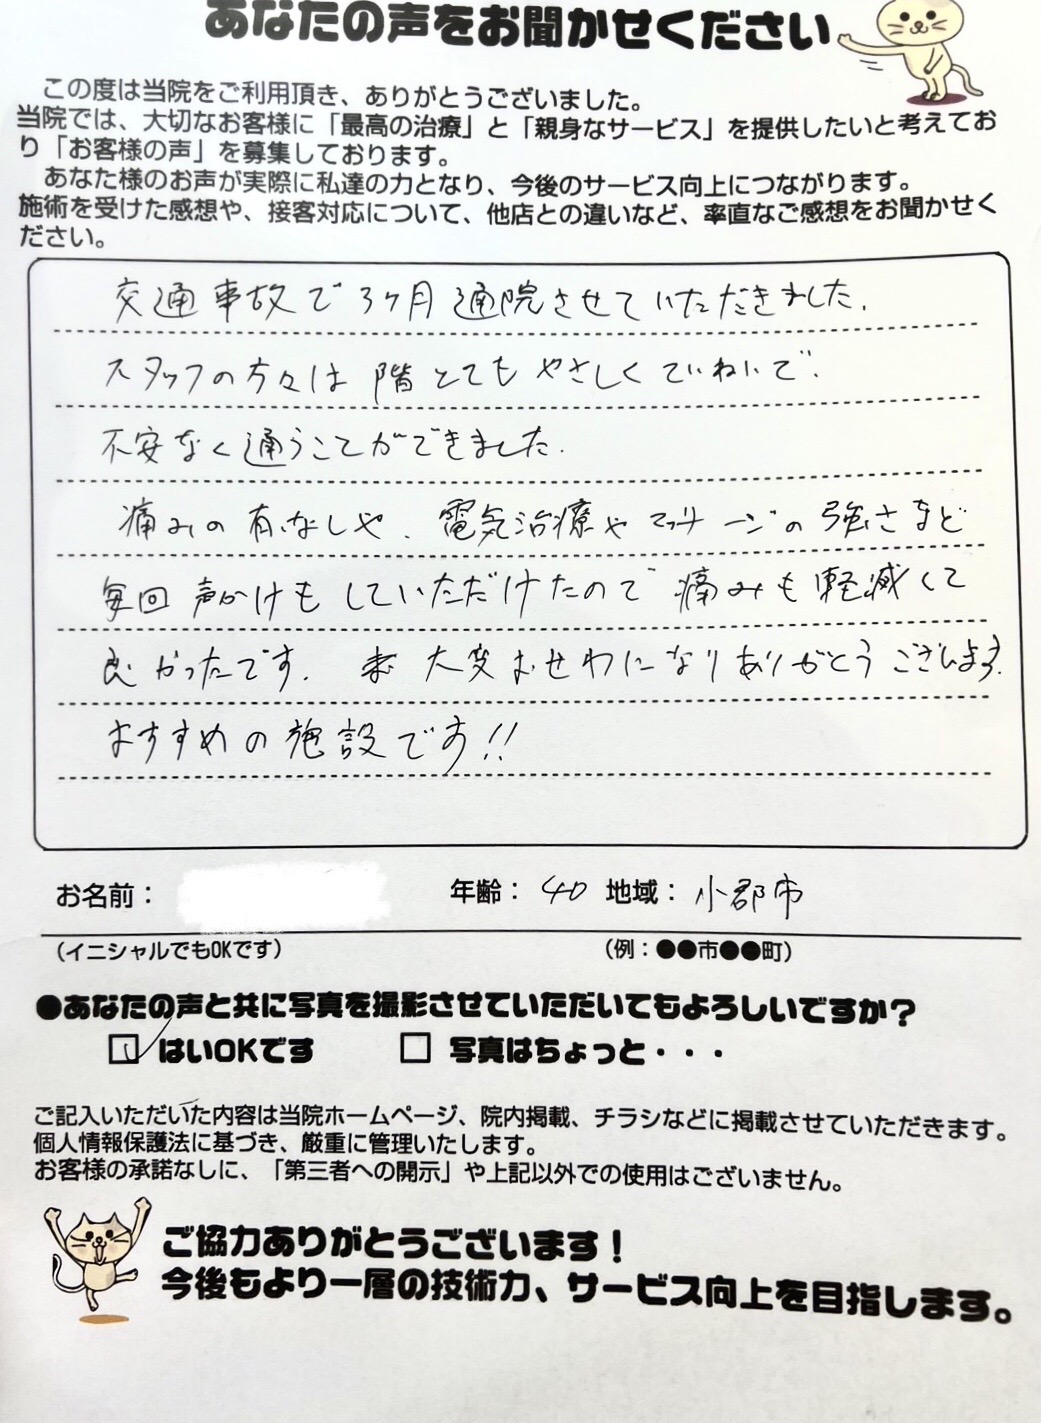 あなたの声をお聞かせください
この度は当院をご利用頂き、ありがとうございました。
当院では、大切なお客様に「最高の治療」と「親身なサービス」を提供したいと考えてお
り「お客様の声」を募集しております。
あなた様のお声が実際に私達の力となり、今後のサービス向上につながります。
施術を受けた感想や、接客対応について、他店との違いなど、率直なご感想をお聞かせく
ださい。
交通事故で3ヶ月通院させていただきました。
スタッフの方々は階とてもやさしくていねいで、
不安なく通うことができました。
痛みの有.なしや、電気治療やマッサージの強さなど
毎回声かけもしていただけたので痛みも軽減して
良かったです。大変おせわになりありがとうございます。
おすすめの施設です!!
お名前： 年齢：40 地域：小郡市
（イニシャルでもOKです） （例：●●市●●町）
●あなたの声と共に写真を撮影させていただいてもよろしいですか？
はいOKです 写真はちょっと・・・
ご記入いただいた内容は当院ホームページ、院内掲載、チラシなどに掲載させていただきます。
個人情報保護法に基づき、厳重に管理いたします。
お客様の承諾なしに、「第三者への開示」や上記以外での使用はございません。
ご協力ありがとうございます！
今後もより一層の技術力、サービス向上を目指します。